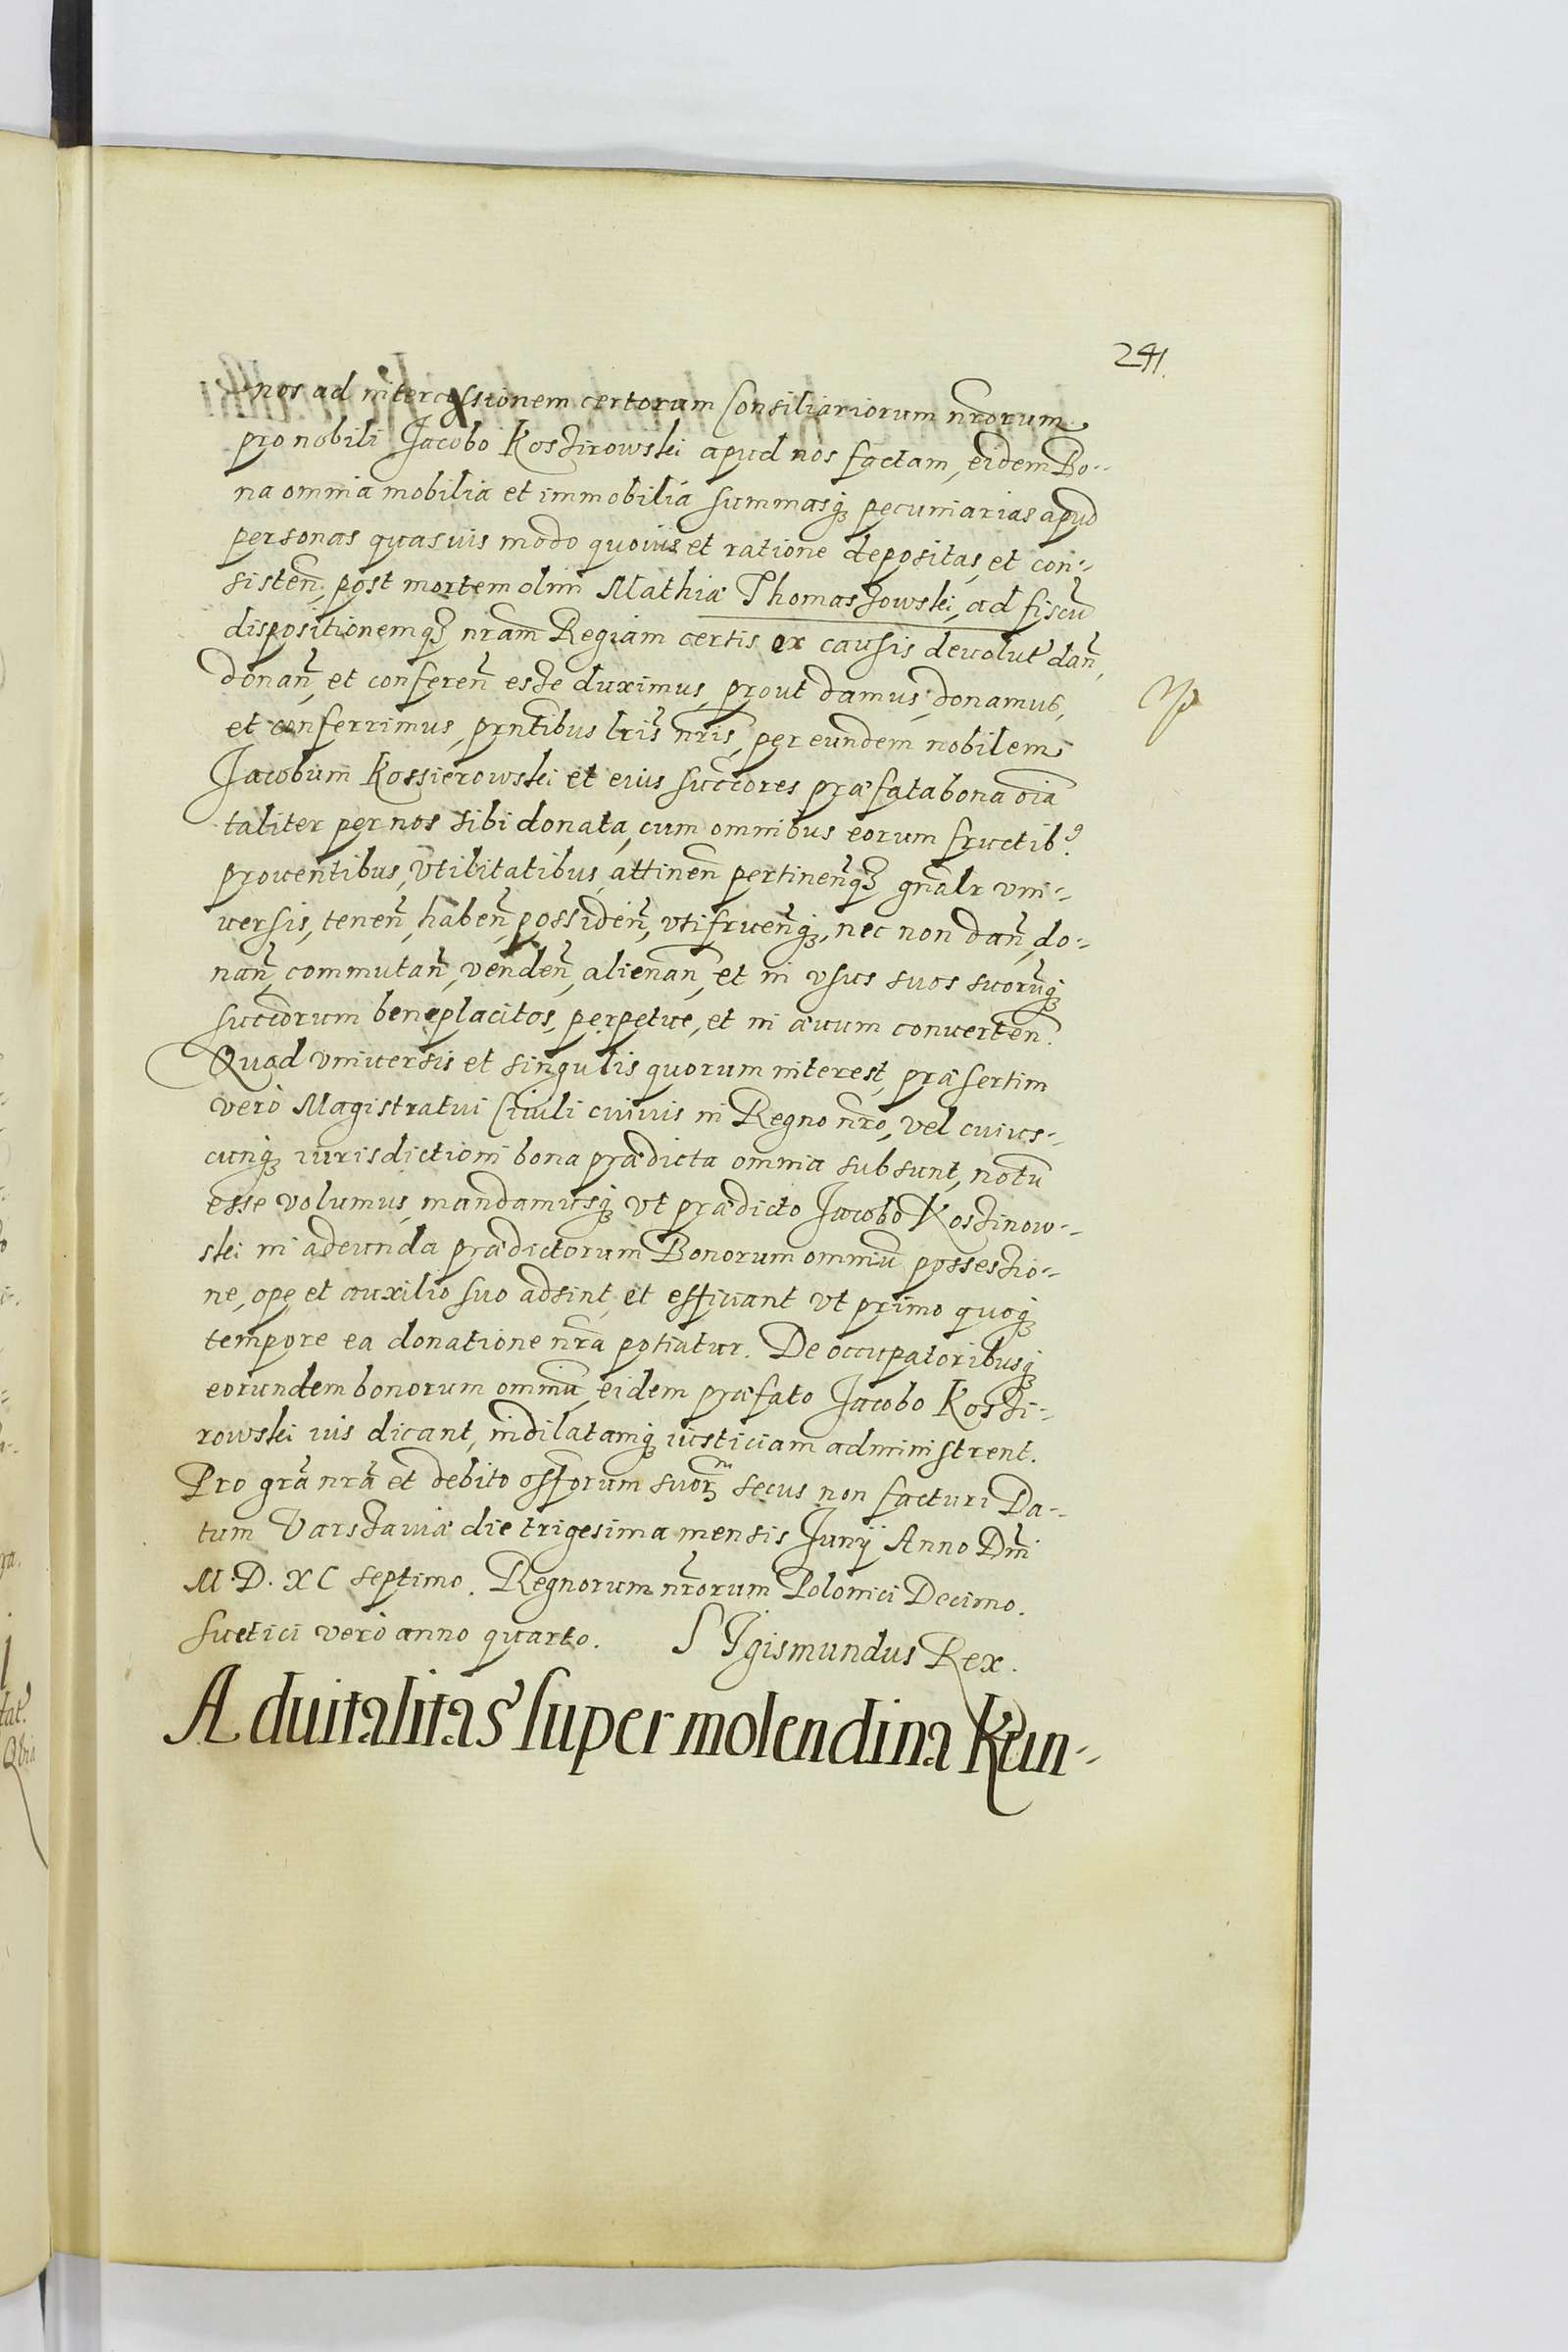 241.
nos ad intercessionem certorum Consiliariorum nr̃orum
pro nobili Jacobo Kossirowski apud nos factam, eidem Bo-
na omnia mobilia et immobilia summasq; pecuniarias apud
personas quasuis modo quouis et ratione depositas, et con-
sisten̄, post mortem olim Mathiæ Thomassowski, ad fiscū
dispositionemq; nr̃am Regiam certis ex causis deuolut' dan̄,
donan̄, et conferen̄ esse duximus, prout damus, donamus,
et conferrimus, prn̄tibus lr̃is nr̃is, per eundem nobilem
Jacobum Kossierowski et eius succ̄ores præfata bona oīa
taliter per nos sibi donata, cum omnibus eorum fructib9.
prouentibus, vtilitatibus, attinen̄ pertinen̄q; gn̄alr vni-
uersis, tenen̄, haben̄, possiden̄, vtifruen̄q;, nec non dan̄, do-
nan̄, commutan̄, venden̄, alienan̄, et in vsus suos suorūq;
succ̄orum beneplacitos, perpetue, et in æuum conuerten̄.
Quod vniuersis et singulis quorum interest, præsertim
verò Magistratui Ciuili cuiuis in Regno nr̃o, vel cuius-
cunq; iurisdictioni bona prædicta omnia subsunt, notū
esse volumus, mandamusq; vt prædicto Jacobo Kossinow-
ski in adeunda prædictorum Bonorum omniū possessio-
ne, ope et auxilio suo adsint, et efficiant vt primo quoq;
tempore ea donatione nr̃a potiatur. De occupatoribusq;
eorundem bonorum omniū, eidem præfato Jacobo Kossi-
rowski ius dicant, indilatamq; iusticiam administrent.
Pro gr̃a nr̃a et debito officiorum suorm secus non facturi Da-
tum Varssauiæ die trigesima mensis Junij Anno Dn̄i
M.D.XC septimo. Regnorum nr̃orum Polonici Decimo.
Suetici verò anno quarto. SIgismundus Rex.
Aduitalitas super molendina Kun-